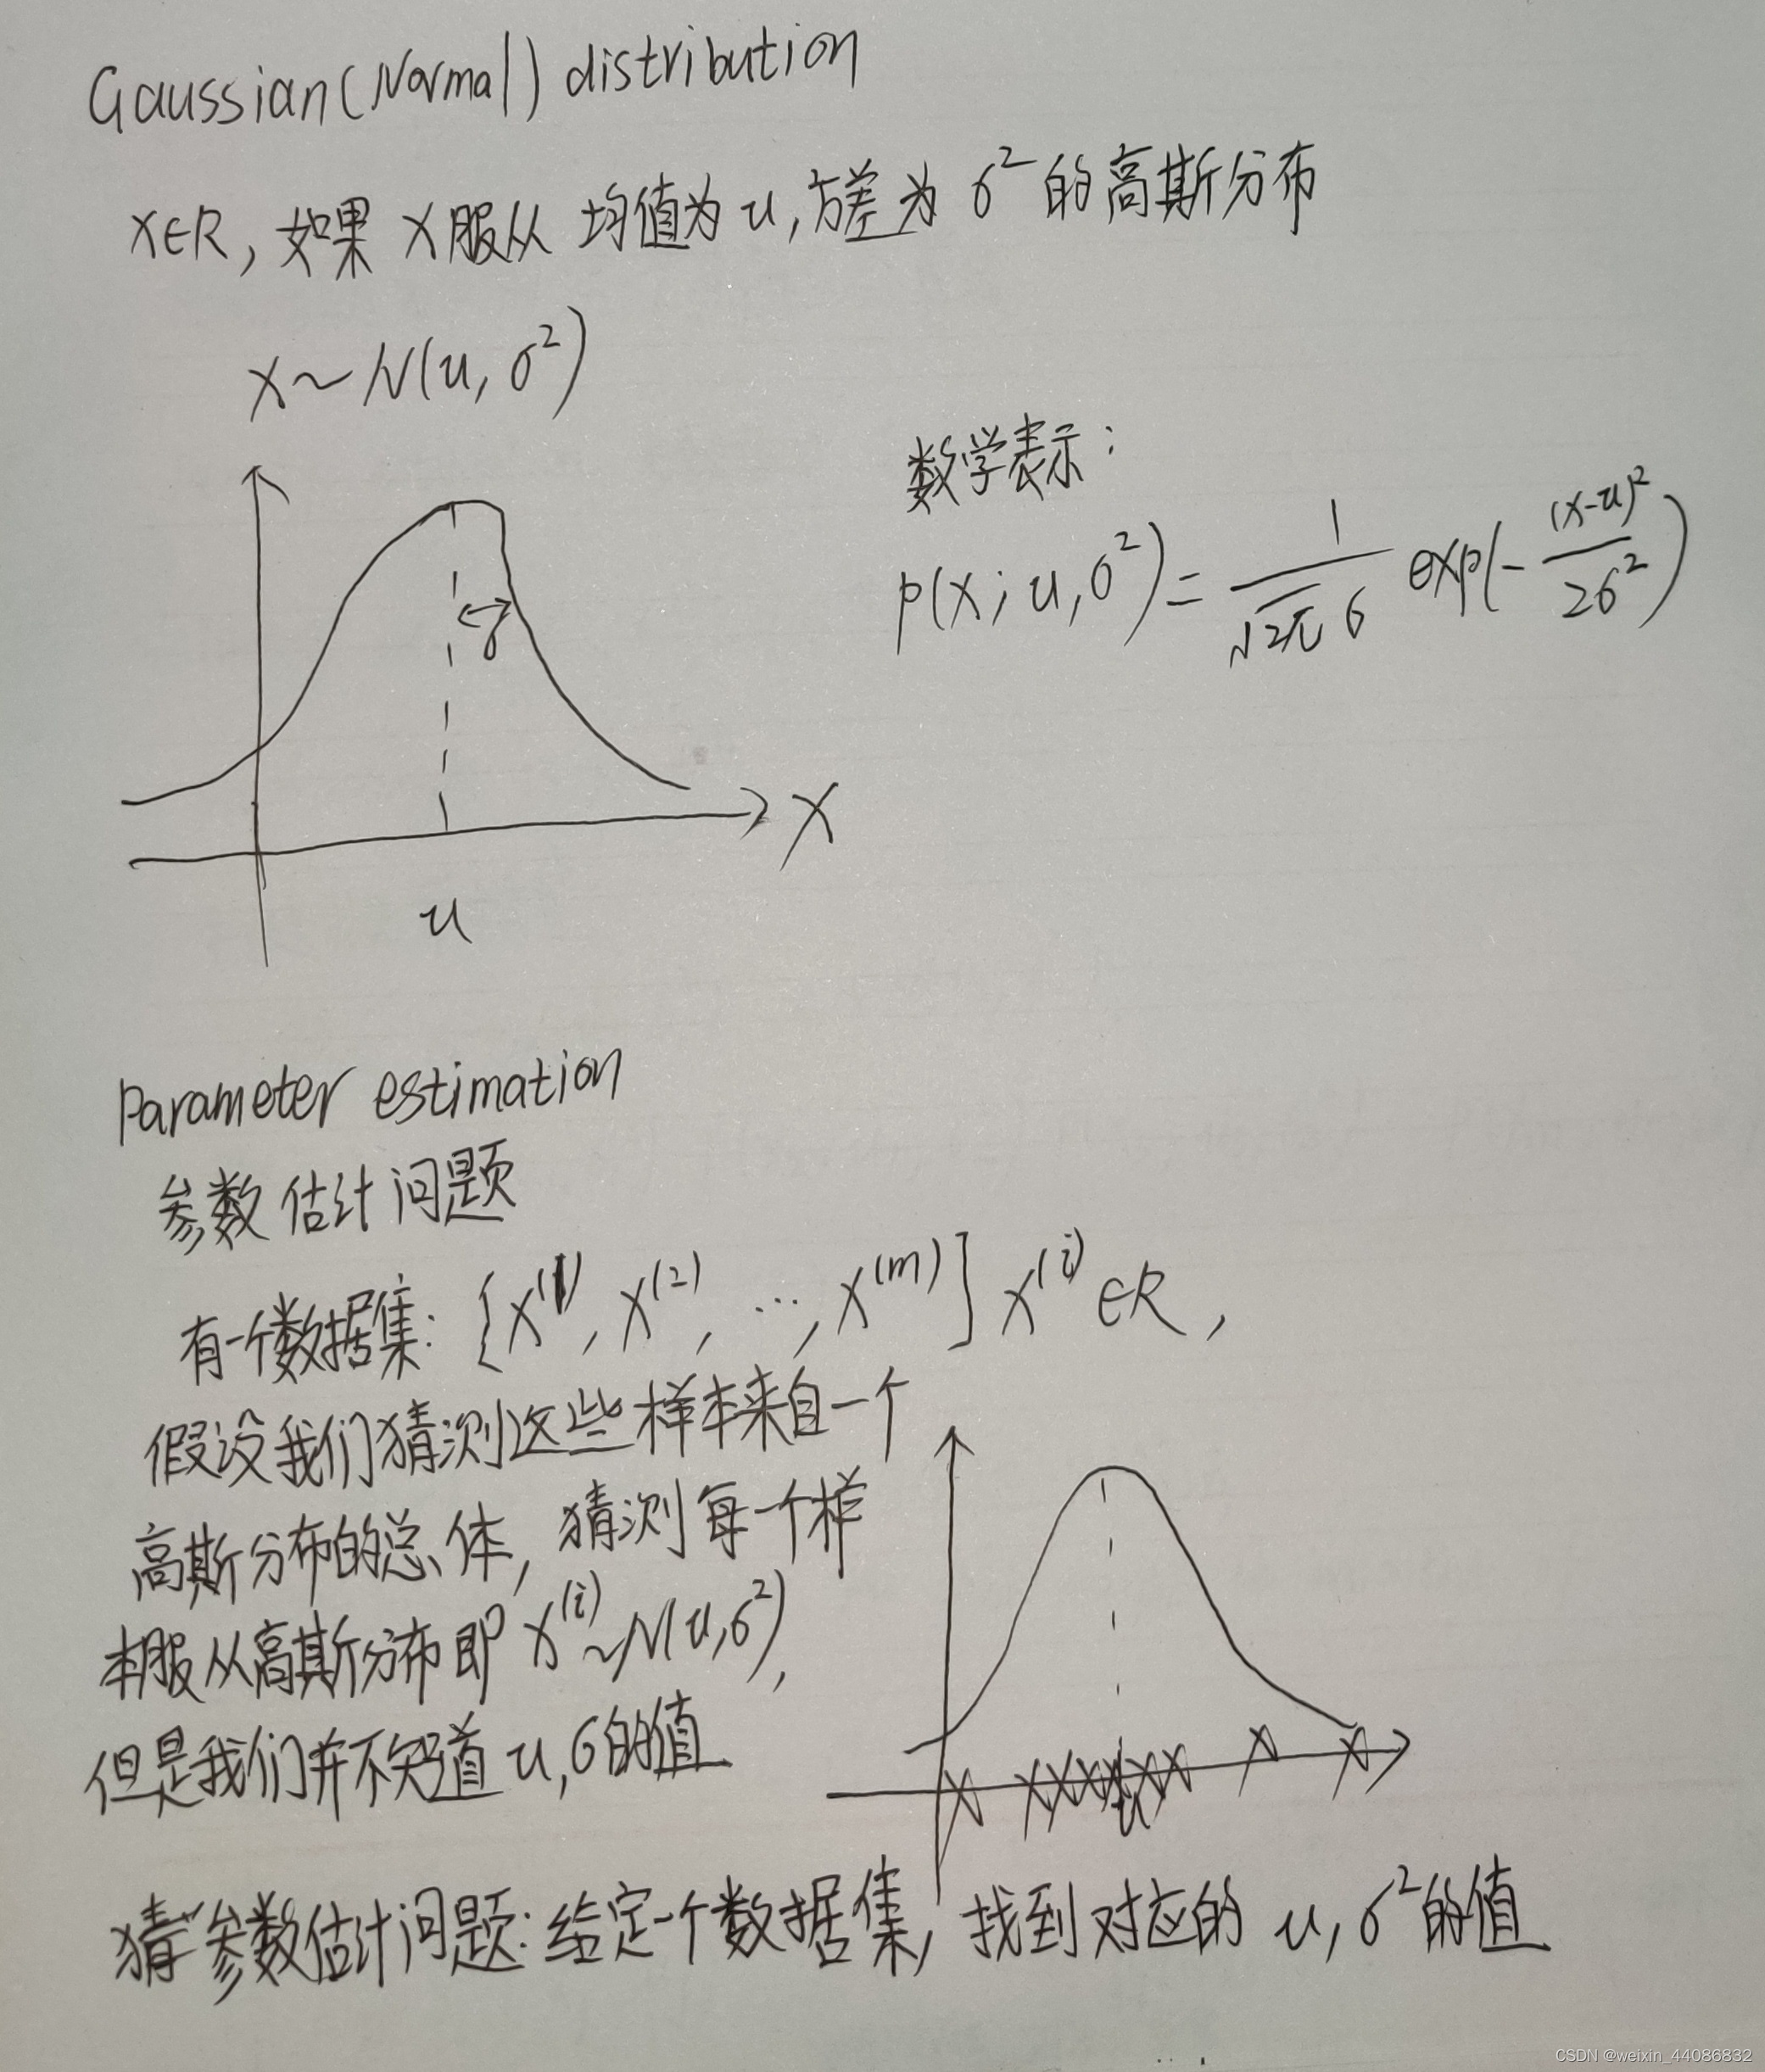 Gaussian(Normal) distribution
x∈R, 如果 x服从 均值为 u, 方差为 σ² 的高斯分布
x~N(u, σ²)
数学表示:
p(x; u, σ²) = 1/(√2π σ) exp(-(x-u)²/2σ²)
σ
x
u
Parameter estimation
参数估计问题
有一个数据集: {x⁽¹⁾, x⁽²⁾, ..., x⁽ᵐ⁾] x⁽ⁱ⁾∈R,
假设我们猜测这些样本来自一个
高斯分布的总体, 猜测每一个样
本服从高斯分布即 x⁽ⁱ⁾~N(u, σ²),
但是我们并不知道 u, σ的值
u
猜 参数估计问题: 给定一个数据集, 找到对应的 u, σ²的值
CSDN @weixin_44086832